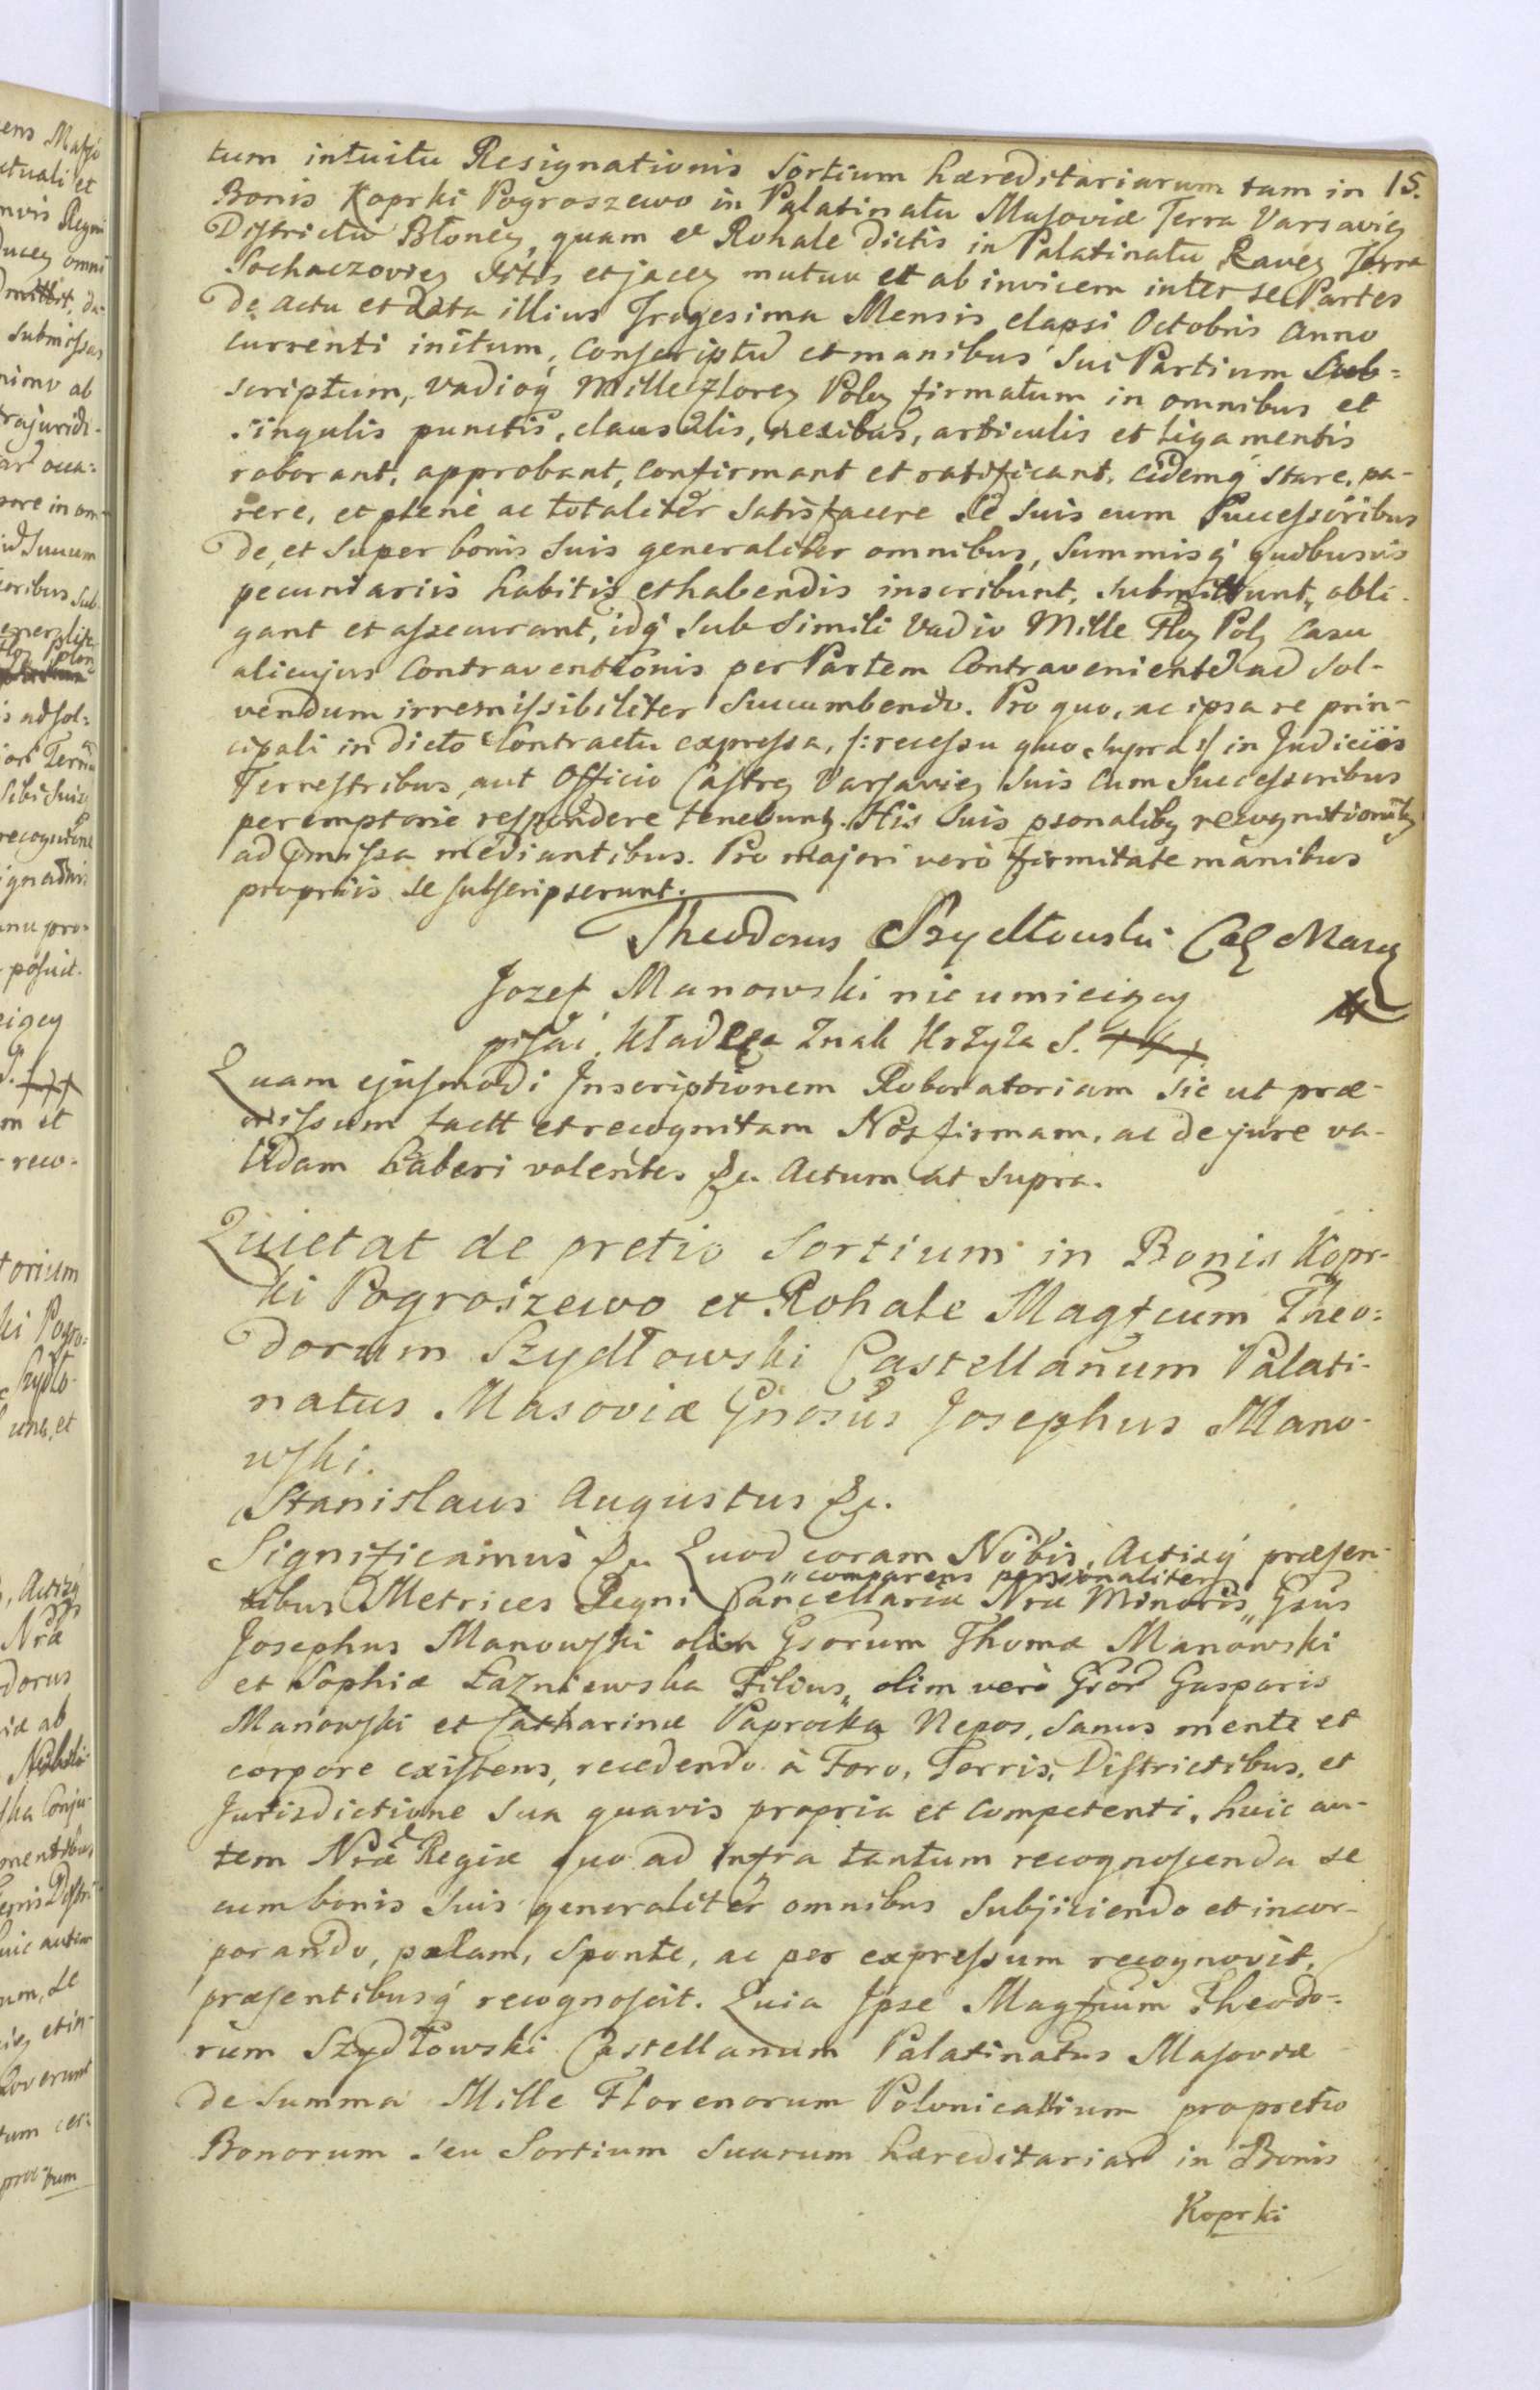 15.
tum intuitu Resignationis Sortium hæreditariarum tam in
Bonis Koprki Pogroszewo in Palatinatu Masoviæ Terra Varsavieȝ
Districtu Błoneȝ, quam et Rohale dictis in Palatinatu Raveȝ Terra
Sochaczovieȝ sitis et jaceȝ mutuu et ab invicem inter se Partes
de actu et data illius Trigesima Mensis elapsi Octobris Anno
currenti initum, conscriptũ et manibus sui Partium sub=
scriptum, vadioq́ Mille Floreȝ Poleȝ firmatum in omnibus et
singulis punctis, clausulis, nexibus, articulis et ligamentis
roborant, approbant, confirmant et ratificant, eidemq́ stare, pa-
rere, et plenè ac totaliter satisfacere se suis cum Successoribus
de, et super bonis suis generaliter omnibus, summisq́ quibusvis
pecuniariis habitis et habendis inscribunt, submittunt, obli-
gant et assecurant, idq́ sub simili vadio Mille Floȝ Polȝ casu
alicujus contraventionis per Partem contravenientẽ ad sol-
vendum irremissibiliter succumbendo. Pro quo, ac ipsa re prin-
cipali in dicto Contractu expressa, /: recessu quo supra :/ in Judiciis
Terrestribus, aut Officio Castreȝ Varsavieȝ suis cum Successoribus
peremptorie respondere tenebunȝ. His suis psonalibȝ recognitionibȝ
ad pmissa mediantibus. Pro majori verò firmitate manibus
propriis se subscripserunt.
Theodorus Szydłowski Casȝ Masoȝ
Jozef Manowski nie umieiący
pisać, kładę Znak Krzyża S. +++
Quam ejusmodi Inscriptionem Roboratoriam sic ut præ-
missum factt et recognitam Nos firmam, ac de jure va-
lidam haberi volentes &c. Actum ut supra.
Quietat de pretio Sortium in Bonis Kopr-
ki Pogroszewo et Rohale Magfcum Theo=
dorum Szydłowski Castellanum Palati-
natus Masoviæ Gnosus Josephus Mano-
wski.
Stanislaus Augustus &c.
Significamus &c. Quod coram Nobis, Actisq́ præsen-
tibus Metrices Regni Cancellariæ Nræ Minoris "comparens personaliter" Gsus
Josephus Manowski olim Gsorum Thomæ Manowski
et Sophiæ Łazniewska Filius, olim verò Gsor Gasparis
Manowski et Catharinæ Paprocka Nepos, sanus mente et
corpore existens, recedendo à Foro, Terris, Districtibus, et
Jurisdictione sua quavis propria et competenti, huic au-
tem Nræ Regiæ quo ad infra tantum recognoscenda se
cum bonis suis generaliter omnibus subjiciendo et incor-
porando, palam, sponte, ac per expressum recognovit,
præsentibusq́ recognoscit. Quia Ipse Magfcum Theodo-
rum Szydłowski Castellanum Palatinatus Masoviæ
de summa Mille Florenorum Polonicalium pro pretio
Bonorum seu Sortium suarum hæreditariar in Bonis
Koprki